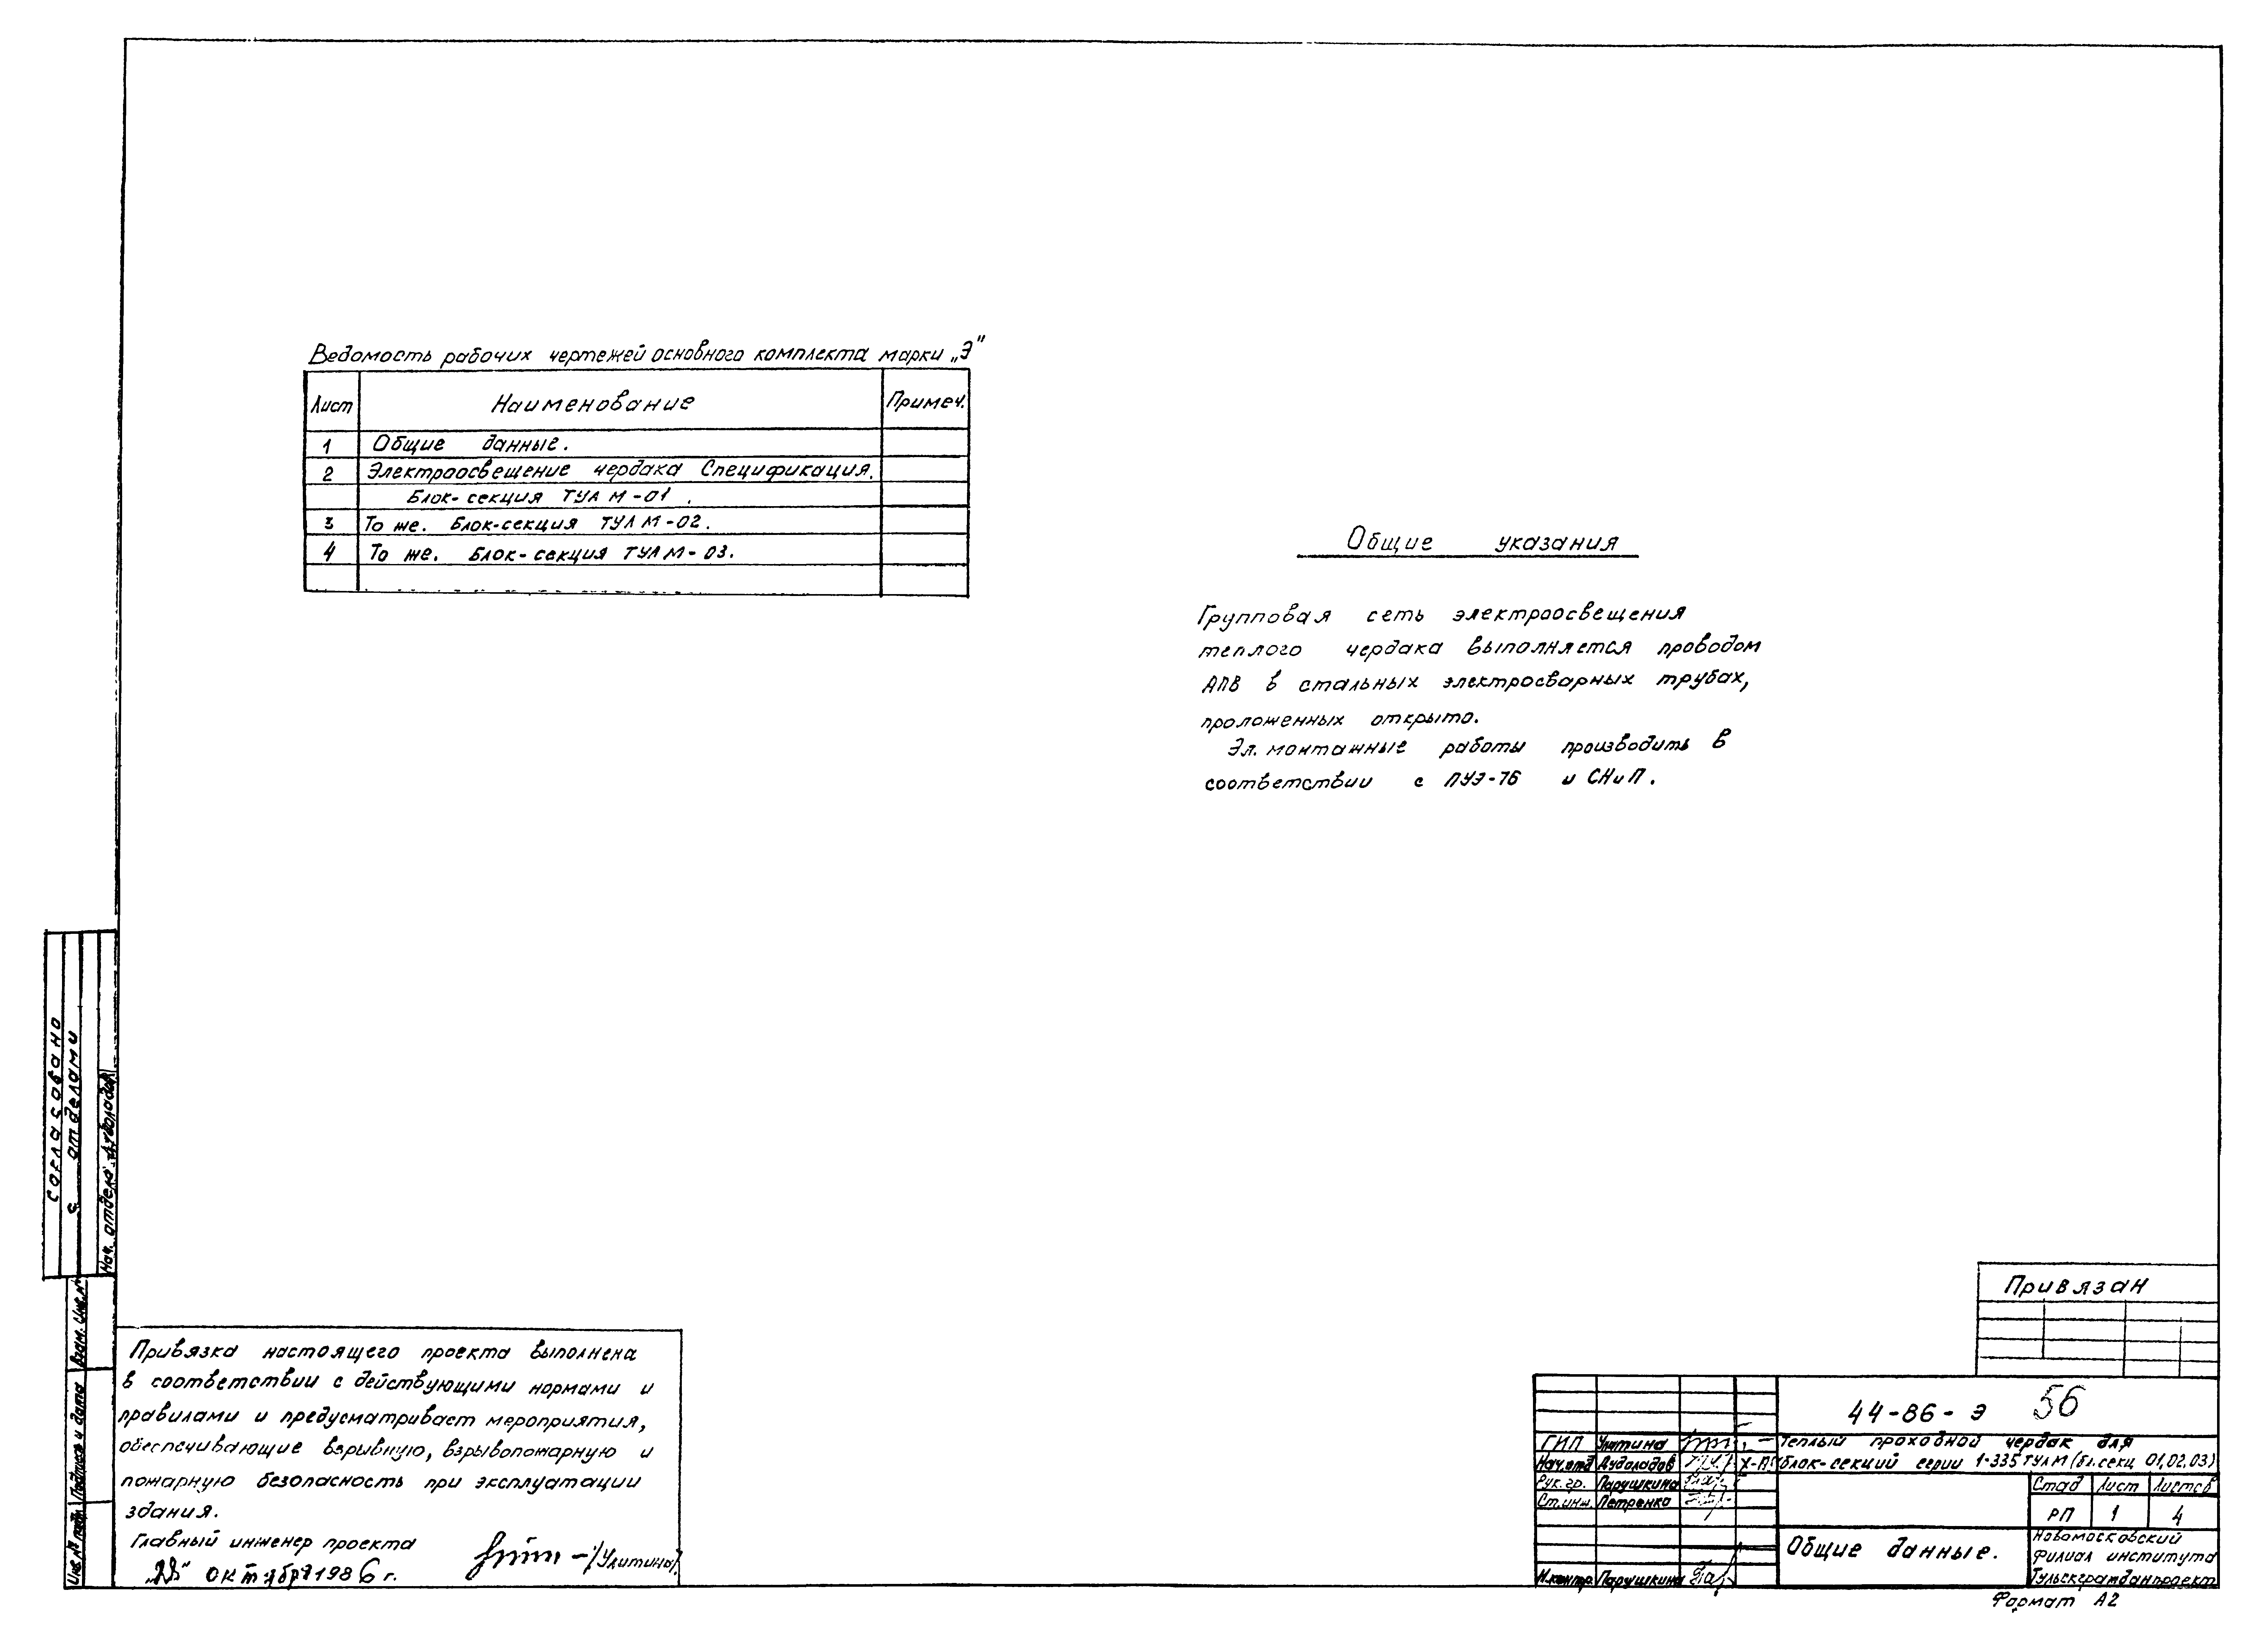 Ведомость рабочих чертежей основного комплекта марки „Э"
Лист Наименование Примеч.
1 Общие данные.
2 Электроосвещение чердака Спецификация.
Блок-секция ТУЛ М-01.
3 То же. Блок-секция ТУЛ М-02.
4 То же. Блок-секция ТУЛ М-03.
Общие указания
Групповая сеть электроосвещения
теплого чердака выполняется проводом
АПВ в стальных электросварных трубах,
проложенных открыто.
Эл. монтажные работы производить в
соответствии с ПУЭ-76 и СНиП.
согласовано
с отделами
Нач. отдела
Взам. Инв. №
Подпись и дата
Инв. № подл.
Привязка настоящего проекта выполнена
в соответствии с действующими нормами и
правилами и предусматривает мероприятия,
обеспечивающие взрывную, взрывопожарную и
пожарную безопасность при эксплуатации
здания.
Главный инженер проекта
октября 1986 г. /Улитина/
Привязан
44-86-Э 56
ГИП Улитина
Теплый проходной чердак для
Нач.отд Дудоладов
блок-секций серии 1-335 ТУЛ М (бл.секц 01,02,03)
Рук. гр. Парушкина
Стад Лист Листов
Ст.инж. Петренко
РП 1 4
Общие данные.
Новомосковский
филиал института
Тульскгражданпроект
Н.контр. Парушкина
Формат А2